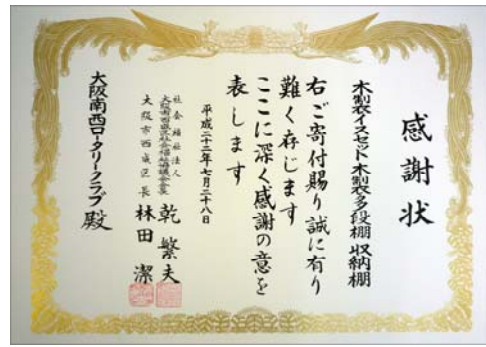 感謝状
木製イスセット 木製多段棚 収納棚
右ご寄付賜り誠に有り
難く存じます
ここに深く感謝の意を
表します
平成二十二年七月二十八日
社会福祉法人
大阪市西成区社会福祉協議会会長 乾 繁夫
大阪市西成区長 林田 潔
大阪南西ロータリークラブ 殿